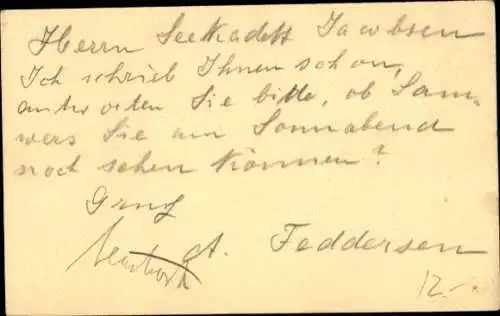 Herrn Seekadett Jacobsen
Ich schrieb Ihnen schon,
antworten Sie bitte, ob Sam-
wers Sie am Sonnabend
noch sehen können?
Gruß
A. Feddersen
12.-